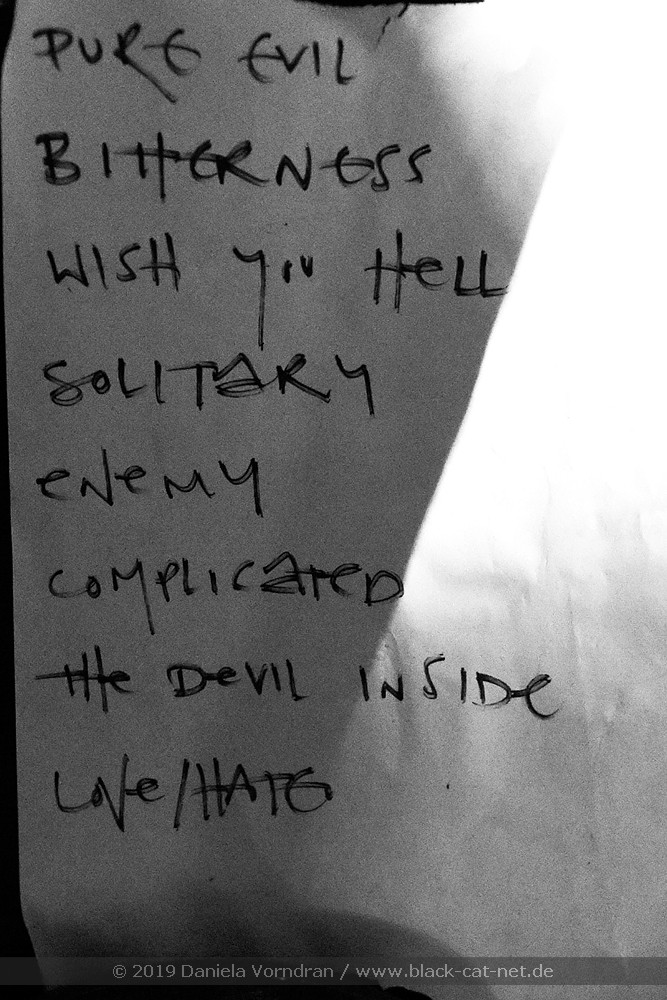 PURE EVIL
BITTERNESS
WISH YOU HELL
SOLITARY
eNeMY
COMPLICATED
THe DeVIL INSIDe
LOVe/HATE
© 2019 Daniela Vorndran / www.black-cat-net.de